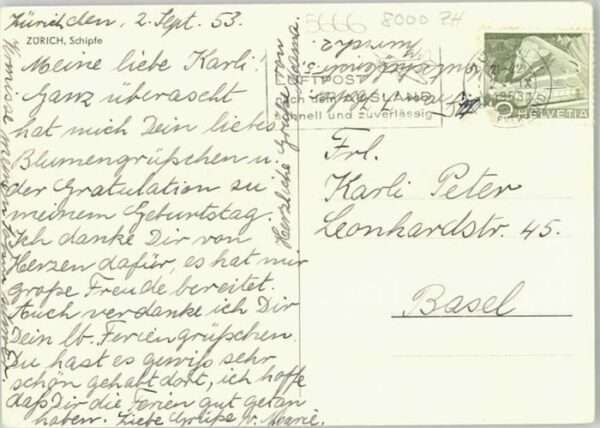 Zürich den, 2. Sept. 53.
ZÜRICH, Schipfe
Meine liebe Karli!
Ganz überascht
hat mich Dein liebes
Blumengrüßchen u.
der Gratulation zu
meinem Geburtstag.
Ich danke Dir von
Herzen dafür, es hat mir
große Freude bereitet.
Auch verdanke ich Dir
Dein lb. Feriengrüßchen.
Du hast es gewiß sehr
schön gehabt dort, ich hoffe
daß Dir die Ferien gut getan
haben. Liebe Grüße v. Marie.
Herzliche Grüße von
Mama.
5666 8000 ZH
LUFTPOST
nach dem AUSLAND
schnell und zuverlässig
HELVETIA
Frl.
Karli Peter
Leonhardstr. 45.
Basel